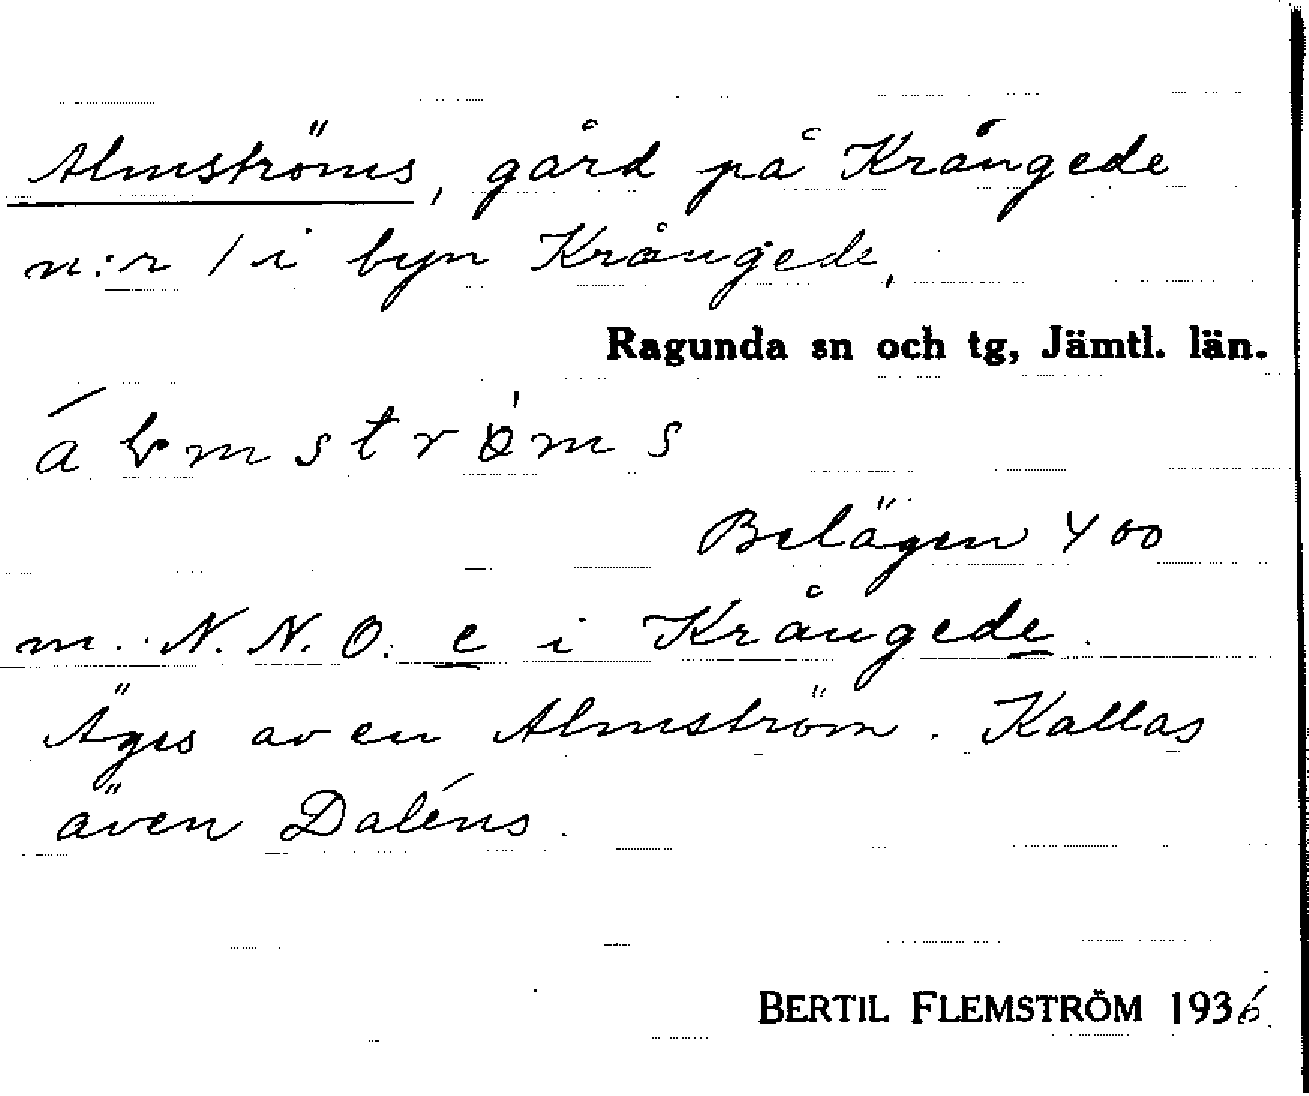 Almströms, gård på Krångede
n:r 1 i byn Krångede,
Ragunda sn och tg, Jämtl. län.
Belägen 400
m. N.N.O. e i Krångede.
Äges av en Almström. Kallas
även Daléns.
BERTIL FLEMSTRÖM 1936